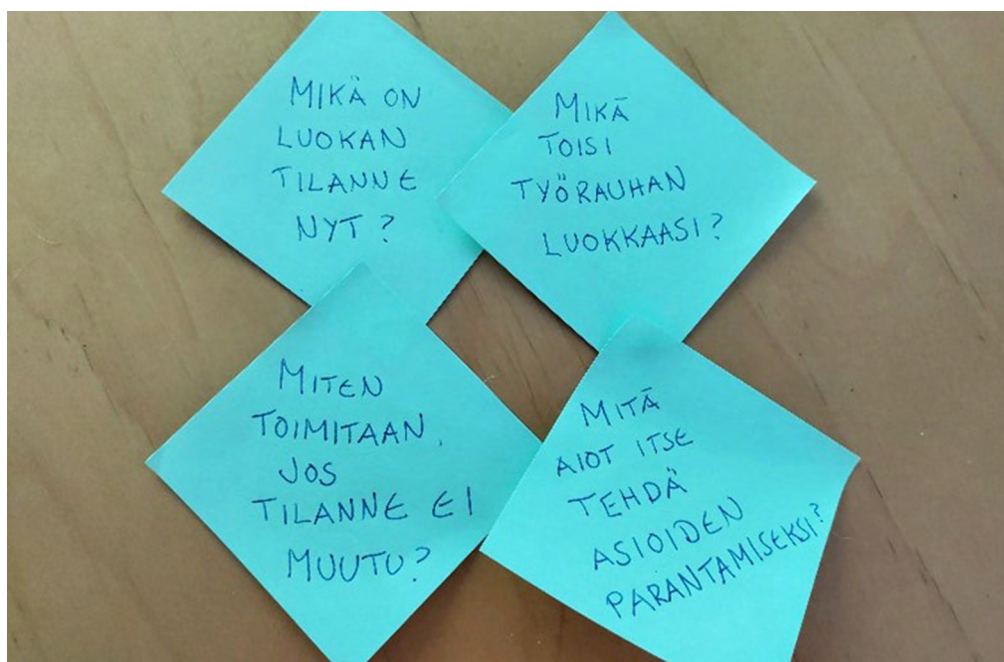 MIKÄ ON
LUOKAN
TILANNE
NYT?
MIKÄ
TOISI
TYÖRAUHAN
LUOKKAASI?
MITEN
TOIMITAAN,
JOS
TILANNE EI
MUUTU?
MITÄ
AIOT ITSE
TEHDÄ
ASIOIDEN
PARANTAMISEKSI?